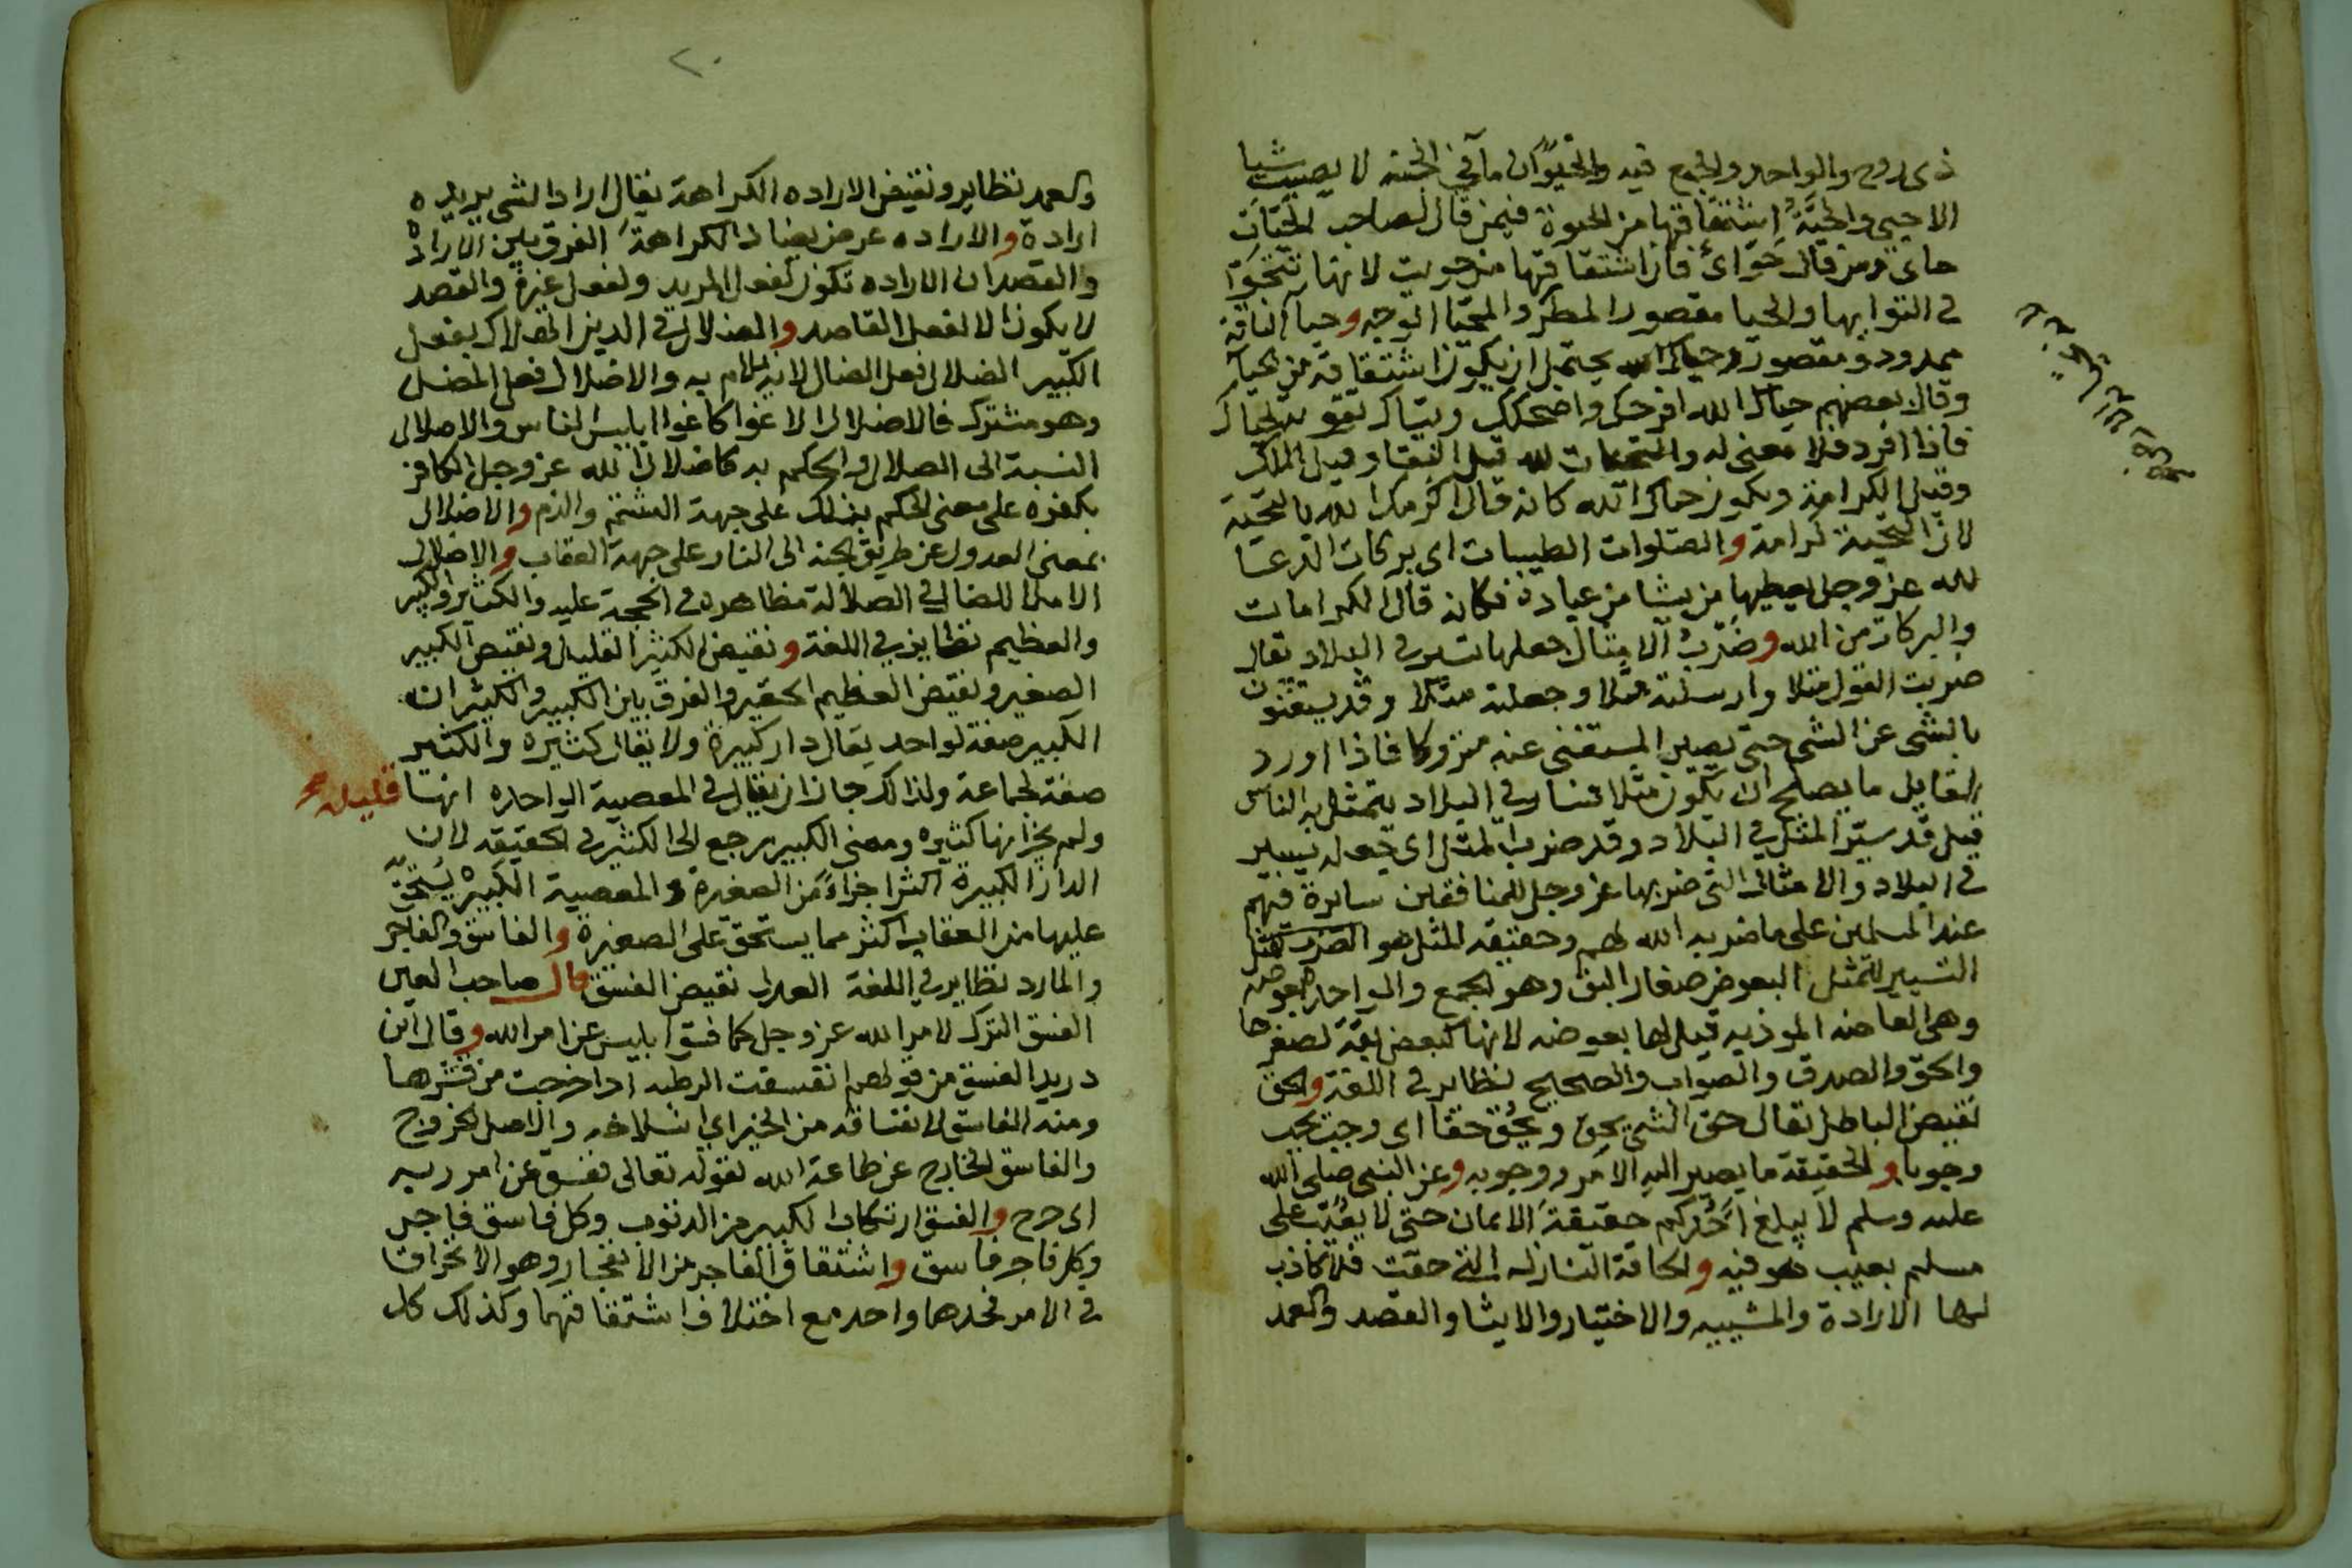 ذى روح والواحد والجمع فيه والحيوان مآ في الجنة لا يصيب شيا
الا حيي والحيّة اشتقاقها من الحيوة فيمن قال لصاحب الحيّات
حاى ومن قال حوّاى فان اشتقاقها من حويت لانها تتحوّا
في التوايها والحيا مقصور المطر والمحيّا الوجه وحيآ الناقة
ممدود ومقصور وحياك الله يحتمل ان يكون اشتقاقه من الحيآ
وقال بعضهم حياك الله افرحك واضحكك وبيّاك تقويه لحياك
فاذا افرد فلا معنى له والتحيات لله قيل البقا وقيل الملك
وقيل الكرامة ويكون حياك الله كانه قال اكرمك الله بالتحية
لان التحية كرامة والصلوات الطيبات اى بركات الدعا
لله عز وجل يعطيها من يشا من عباده فكانه قال الكرامات
والبركات من الله وضرب الامثال جعلها تسير في البلاد يقال
ضربت القول مثلا وارسلته مثلا وجعلته مثلا وقد يستغنون
بالشى عن الشى حتى يصير المستغنى عنه متروكا فاذا اورد
القايل ما يصلح ان يكون مثلا فسار في البلاد يتمثل به الناس
قيل قد سيّر المثل في البلاد وقد ضرب المثل اى جعله يسير
في البلاد والامثال التى ضربها عز وجل للمنافقين سايرة فيهم
عند المسلمين على ما ضربه الله لهم وحقيقه المثل هو الضرب
التسيير للتمثل البعوض صغار البق وهو الجمع والواحد بعوضه
وهى العاضه الموذيه قيل لها بعوضه لانها كبعض بقة لصغرها
والحق والصدق والصواب والصحيح نظاير في اللغة والحق
نقيض الباطل يقال حق الشى يحق ويحُق حقا اى وجب يجب
وجوبا والحقيقة ما يصير اليه الامر ووجوبه وعن النبى صلى الله
عليه وسلم لا يبلغ احدكم حقيقة الايمان حتى لا يعيب على
مسلم بعيب هو فيه والحاقة النازله التى حقت فلا كاذب
لها الارادة والمشييه والاختيار والايثا والقصد والعمد
٢٠
والعمد نظاير ونقيض الاراده الكراهة يقال اراد الشى يريده
ارادة والاراده عرض يضاد الكراهة الفرق بين الارادة
والقصد ان الاراده تكون لفعل المريد ولفعل غيره والقصد
لا يكون الا لفعل القاصد والضلال في الدين الهلاك يقول
الكبير الضلال فعل الضال لانه يلام به والاضلال فعل المضل
وهو مشترك فالاضلال الاغوا كاغوا ابليس الناس والاضلال
النسبة الى الضلال والحكم به كاضلال الله عز وجل الكافر
بكفره على معنى الحكم بذلك على جهة الشتم والذم والاضلال
بمعنى العدول عن طريق الجنه الى النار على جهة العقاب والاضلال
الاملا للضال في الضلالة مظاهره في الحجة عليه والكثير والكبير
والعظيم نظاير في اللغة ونقيض الكثير القليل ونقيض الكبير
الصغير ونقيض العظيم الحقير والفرق بين الكبير والكثير ان
الكبير صفة لواحد يقال دار كبيرة ولا يقال كثيره والكثير
صفة لجماعة ولذلك جاز ان يقال في المعصية الواحده انها قليله
ولم يجز انها كثيره ومعنى الكبير يرجع الى الكثير في الحقيقه لان
الدار الكبيرة اكثر اجزاءً من الصغيرة والمعصية الكبيره يستحق
عليها من العقاب اكثر مما يستحق على الصغيرة والفاسق والفاجر
والمارد نظاير في اللغة العدل نقيض الفسق قال صاحب العين
الفسق الترك لامر الله عز وجل كما فسق ابليس عن امر الله وقال ابن
دريد الفسق من قولهم انفسقت الرطبه اذا خرجت من قشرها
ومنه الفاسق لانفساقه من الخير اي انسلاخه والاصل الخروج
والفاسق الخارج عن طاعة الله لقوله تعالى ففسق عن امر ربه
اى خرج والفسق ارتكاب الكبير من الذنوب وكل فاسق فاجر
وكل فاجر فاسق واشتقاق الفاجر من الانفجار وهو الانخراق
في الامر فحدهما واحد مع اختلاف اشتقاقهما وكذلك كل